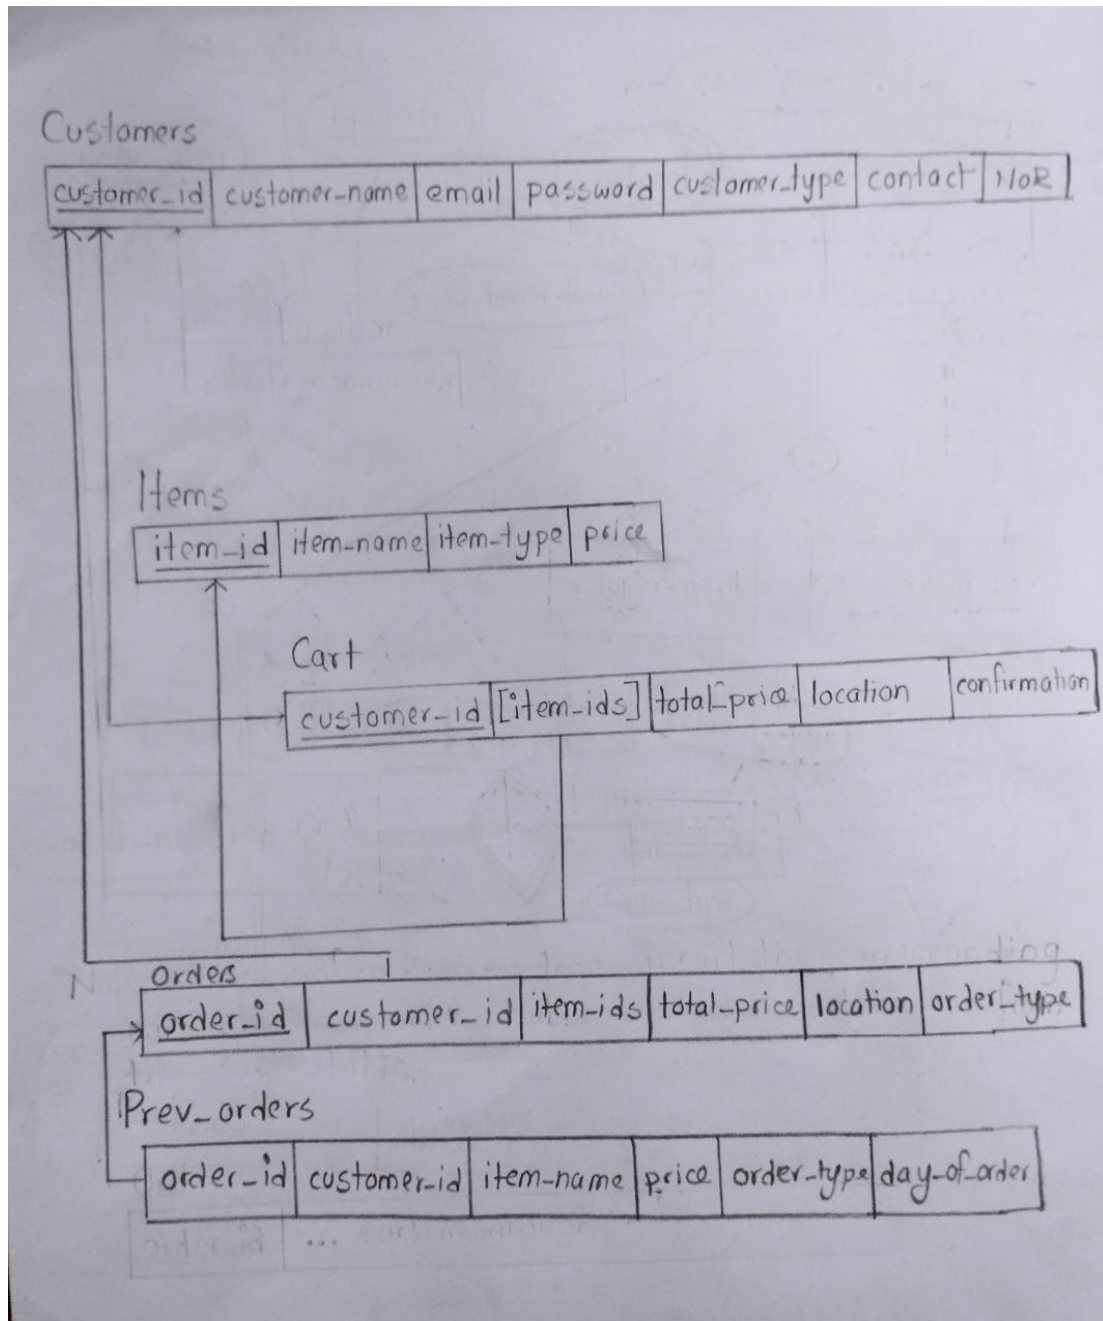 Customers
customer_id customer-name email password customer_type contact NoR
Items
item_id item-name item-type price
Cart
customer_id [item-ids] total_price location confirmation
Orders
order_id customer_id item-ids total_price location order_type
Prev_orders
order_id customer_id item-name price order-type day-of-order
order_id ...